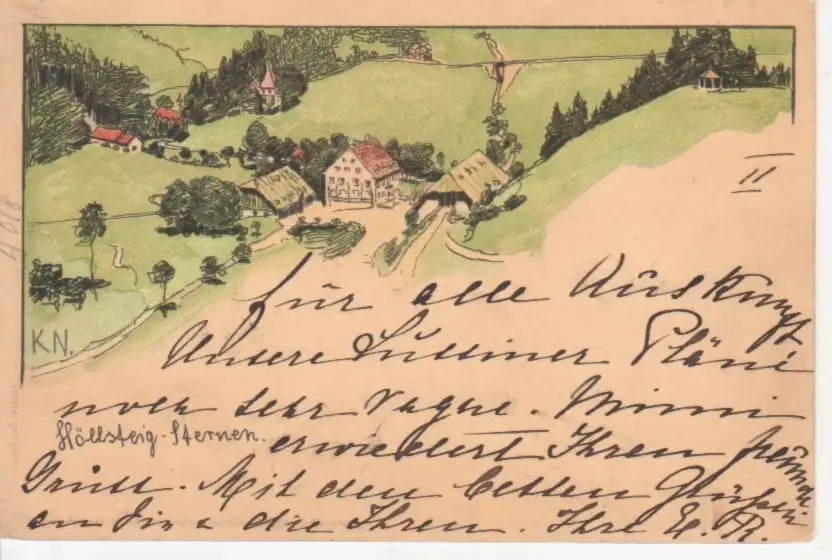 II
für alle Auskunft
Unsere Pläne
noch sehr vague. Mimi
Höllsteig-Sternen.
erwiedert Ihren
Gruss. Mit den besten Grüßen
an Sie & die Ihren. Ihre E. R.
KN.